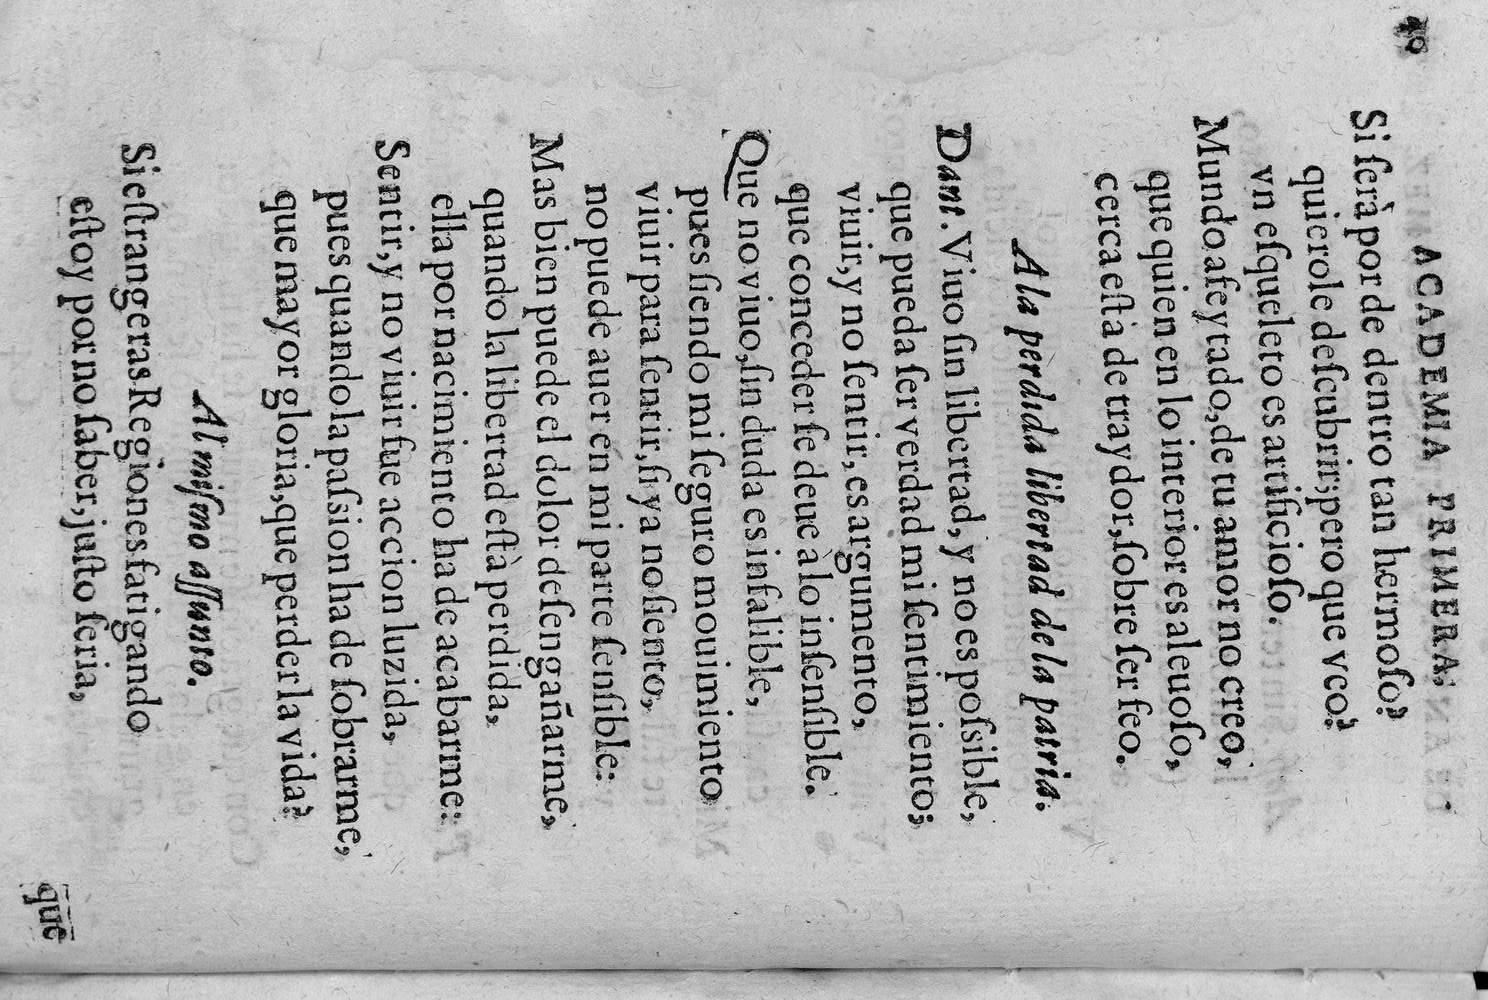 40
ACADEMIA PRIMERA,
Si ſerà por de dentro tan hermoſo?
quierole deſcubrir; pero que veo?
vn eſqueleto es artificioſo.
Mundo afeytado, de tu amor no creo,
que quien en lo interior es aleuoſo,
cerca eſtà de traydor, ſobre ſer feo.
A la perdida libertad de la patria.
Dant. Viuo ſin libertad, y no es poſsible,
que pueda ſer verdad mi ſentimiento;
viuir, y no ſentir, es argumento,
que conceder ſe deue à lo inſenſible.
Que no viuo, ſin duda es infalible,
pues ſiendo mi ſeguro mouimiento
viuir para ſentir, ſi ya no ſiento,
no puede auer en mi parte ſenſible:
Mas bien puede el dolor deſengañarme,
quando la libertad eſtà perdida,
ella por nacimiento ha de acabarme:
Sentir, y no viuir fue accion luzida,
pues quando la paſsion ha de ſobrarme,
que mayor gloria, que perder la vida?
Al miſmo aſſunto.
Si eſtrangeras Regiones fatigando
eſtoy por no ſaber, juſto ſeria,
que